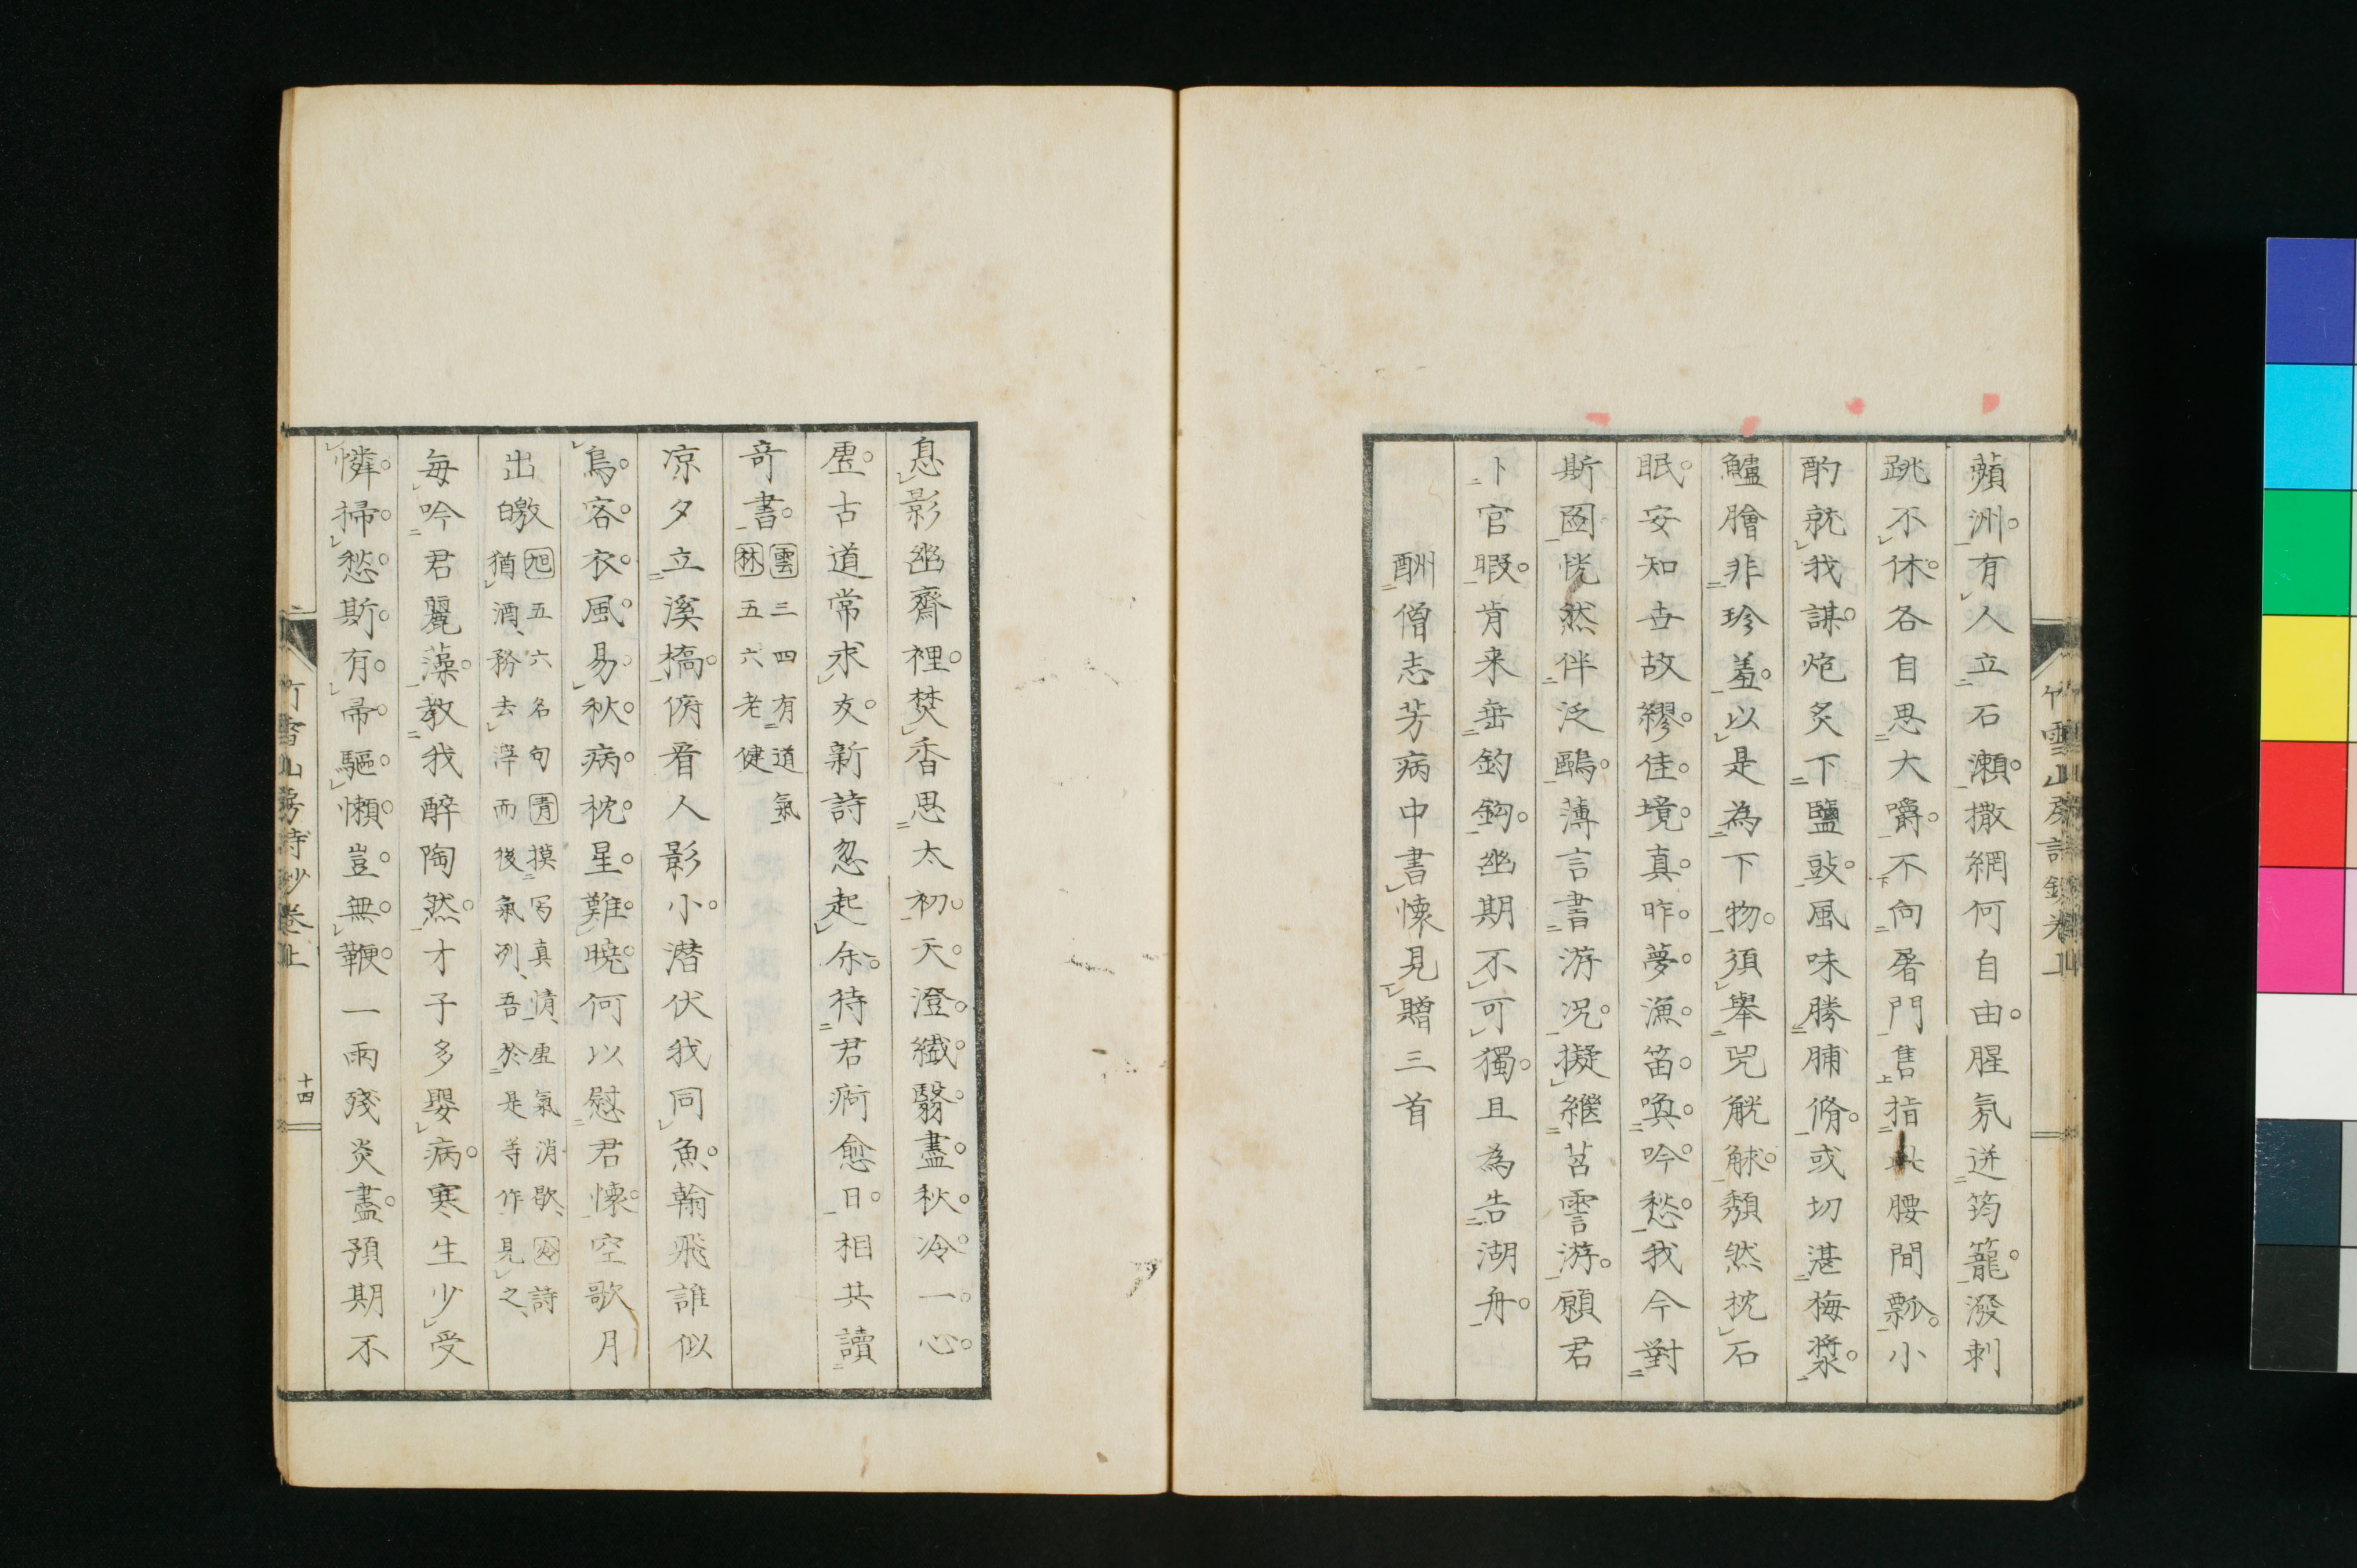 蘋洲有人立石瀬撒網何自由腥氛迸筠籠潑刺
跳不休各自思大嚼不向屠門售指此腰間瓢小
酌就我謀炮炙下鹽豉風味勝脯脩或切湛梅漿
鱸膾非珍羞以是為下物須舉兕觥觩頹然枕石
眠安知世故繆佳境真昨夢漁笛喚吟愁我今對
斯圖恍然伴泛鷗薄言書游况擬継苕霅游願君
卜官暇肯来垂釣鈎幽期不可獨且為告湖舟
酬僧志芳病中書懐見贈三首
息影幽齋裡焚香思太初天澄纎翳盡秋冷一心
虚古道常求友新詩忽起余待君痾愈日相共讀
奇書雲林三四有道氣五六老健
凉夕立溪橋俯看人影小潜伏我同魚翰飛誰似
鳥客衣風易秋病枕星難曉何以慰君懐空歌月
出皦旭五六名句青摸写真情虚氣消歇冷詩猶酒務去滓而後氣冽吾於是等作見之
毎吟君麗藻教我醉陶然才子多嬰病寒生少受
憐掃愁斯有帚驅懶豈無鞭一雨殘炎盡預期不
竹雪山房詩鈔卷上
十四